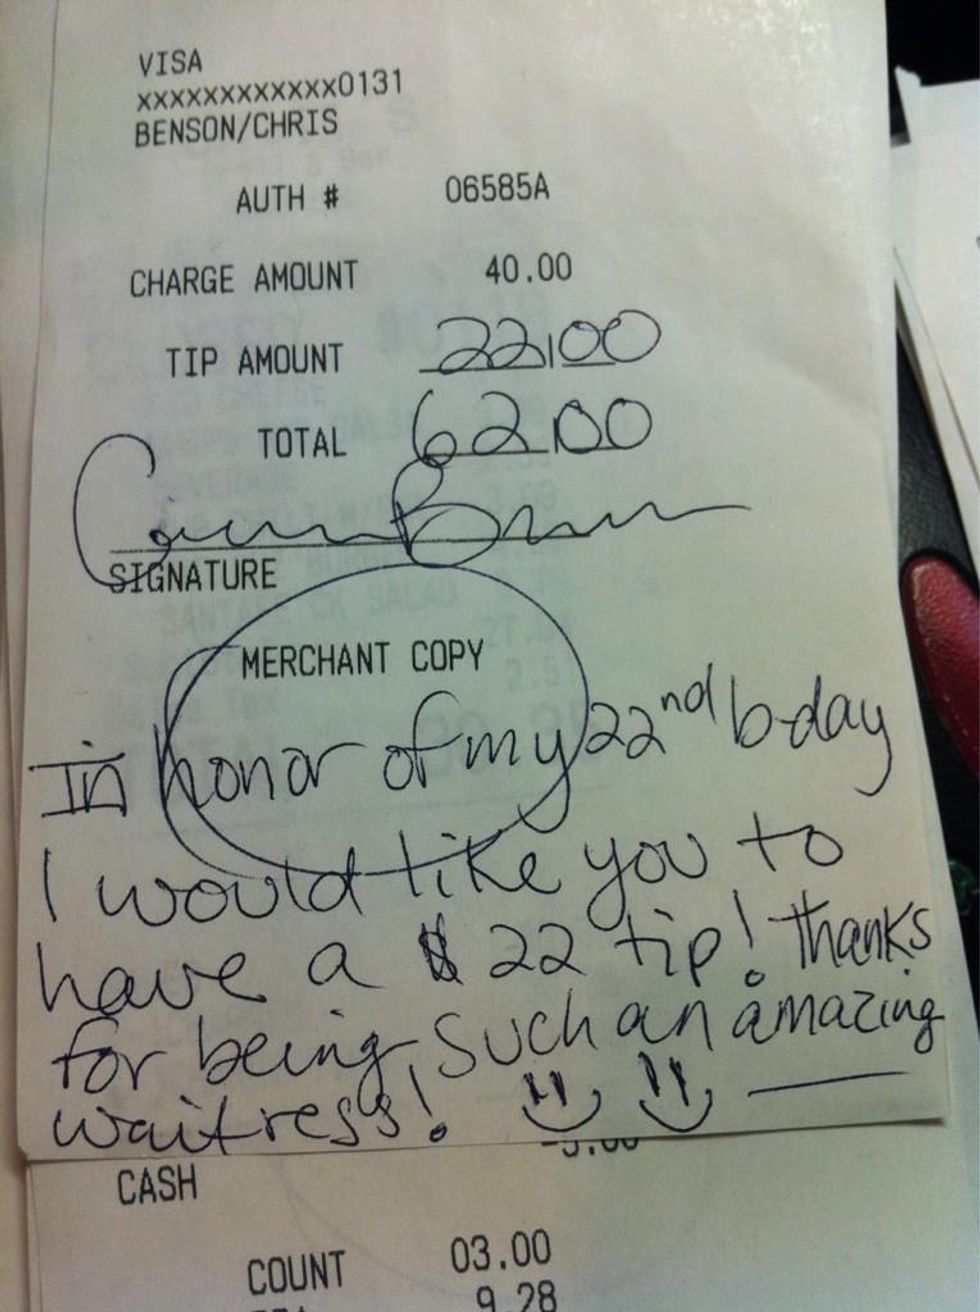 VISA
xxxxxxxxxxxx0131
BENSON/CHRIS
AUTH # 06585A
CHARGE AMOUNT 40.00
TIP AMOUNT 22.00
TOTAL 62.00
SIGNATURE
MERCHANT COPY
In honor of my 22nd b-day
I would like you to
have a $22 tip! Thanks
for being such an amazing
waitress!
CASH
COUNT 03.00
9.28